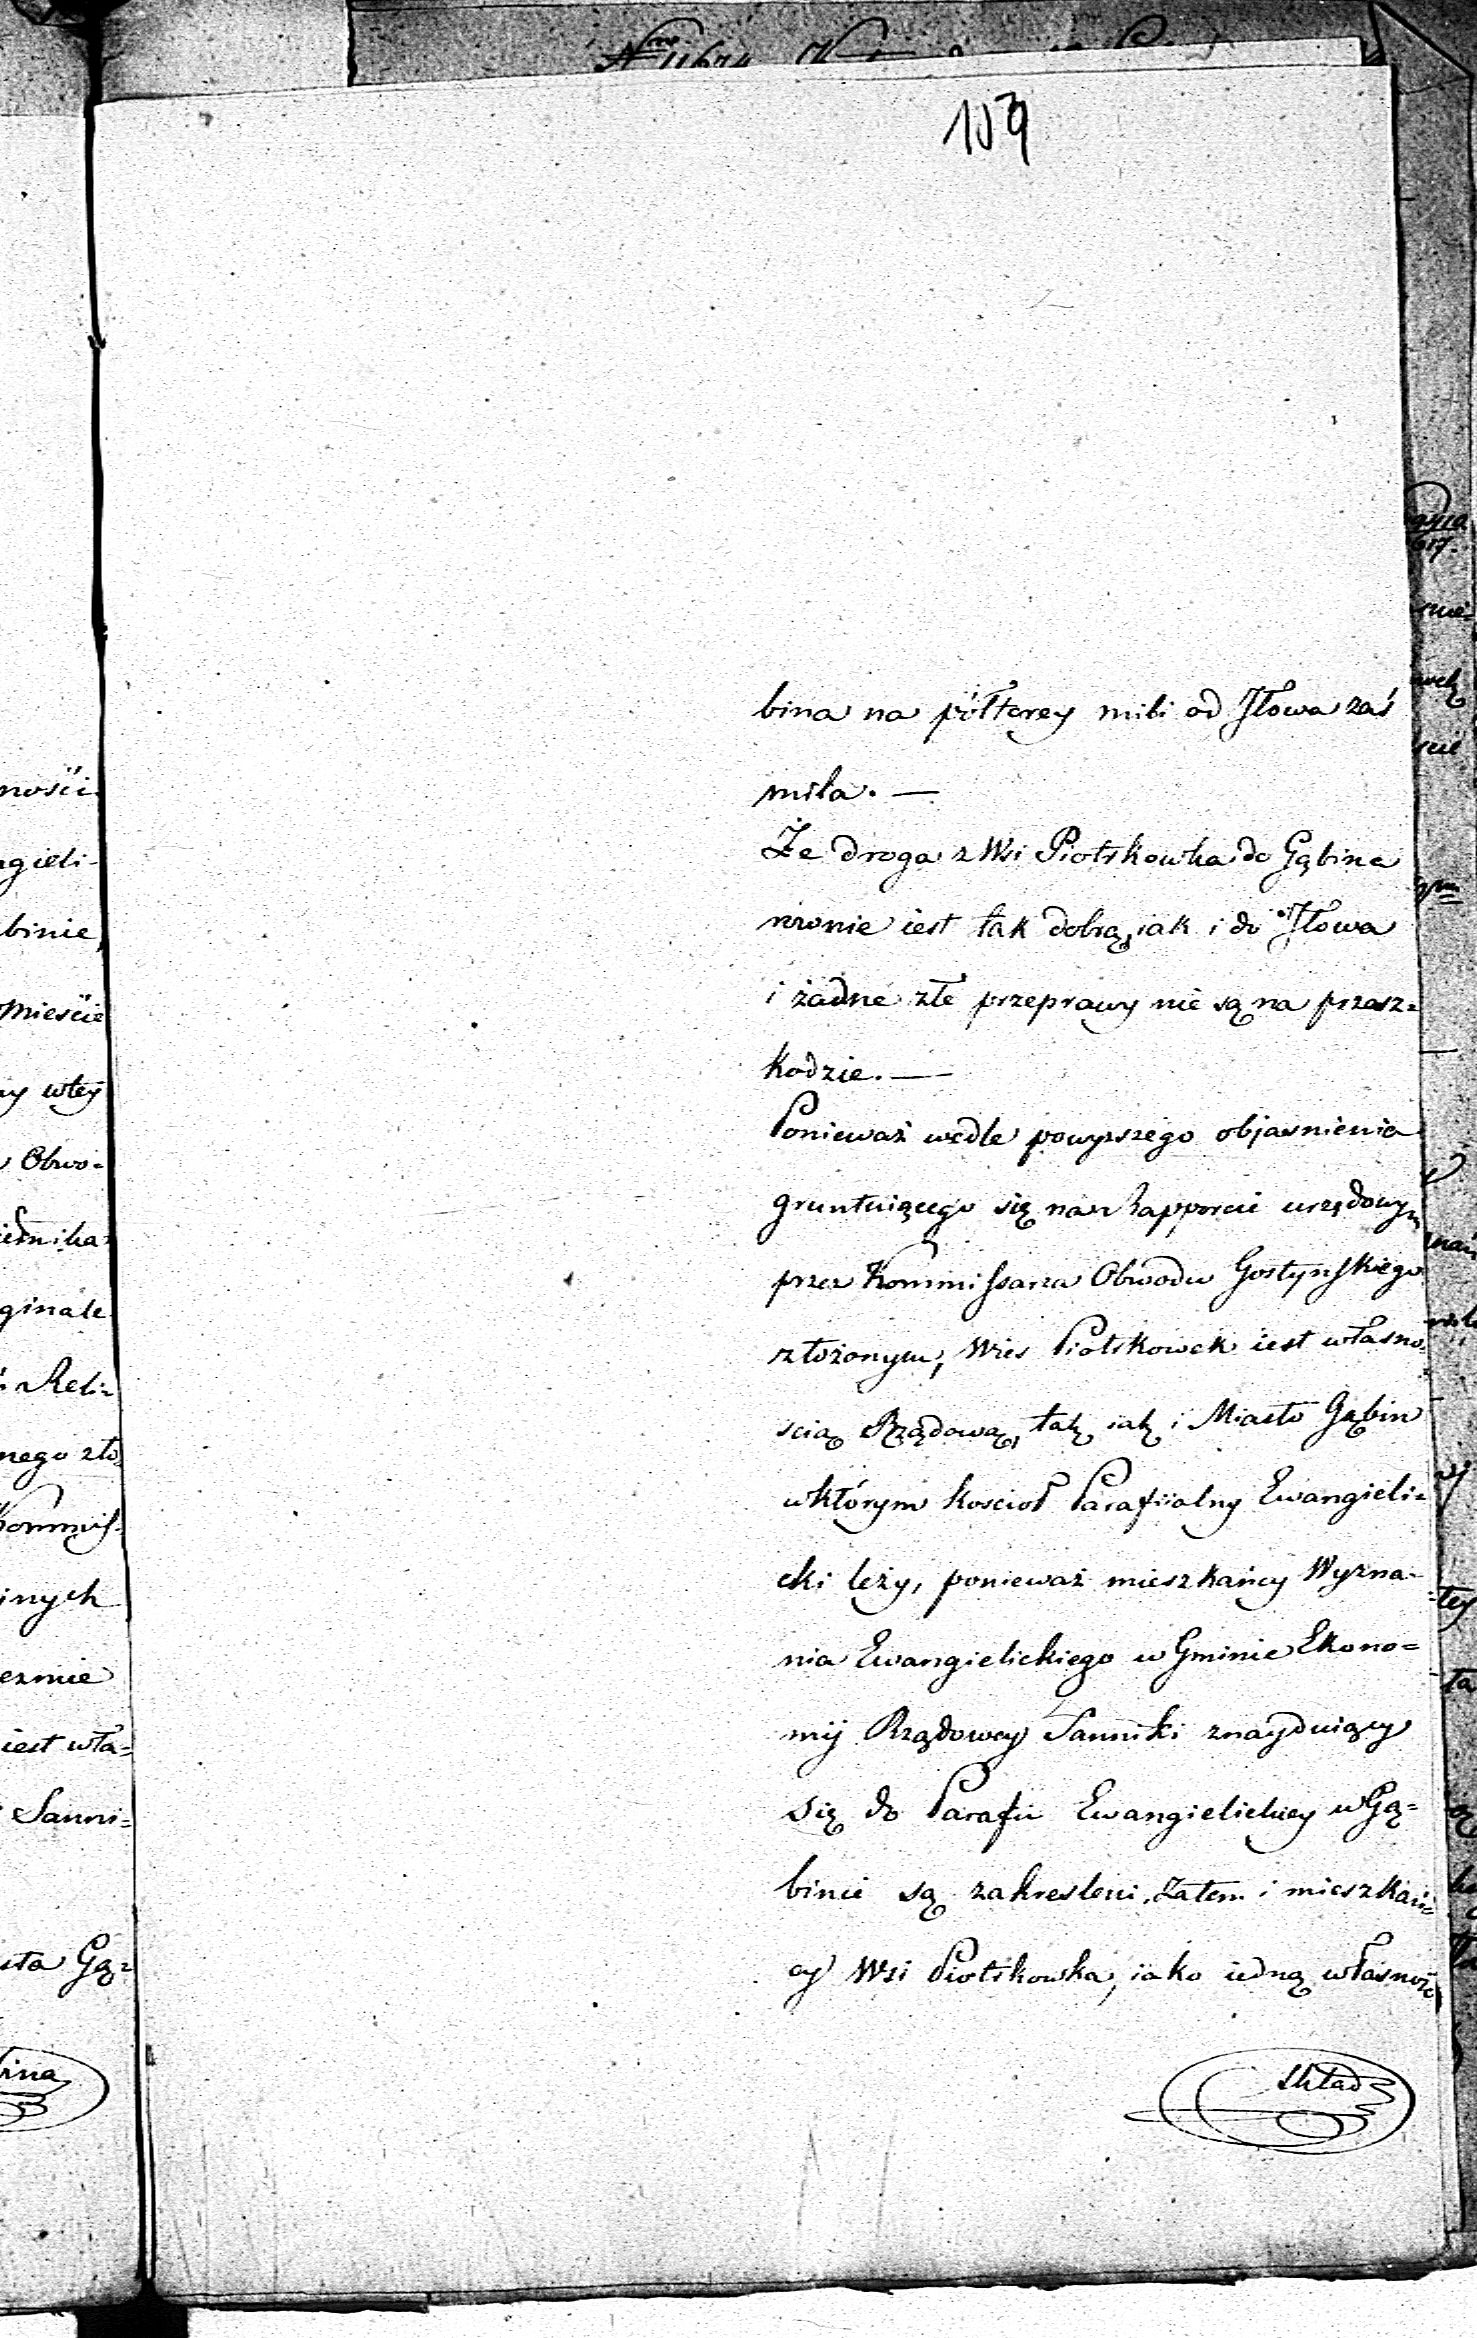 109
bina na półtorey mili od Jłowa zaś
mila. —
Że droga z Wsi Piotrkowka do Gąbina
rownie iest tak dobrą, iak i do Jłowa
i żadne złe przeprawy nie są na przesz=
kodzie. —
Ponieważ wedle powyższego objasnienia
gruntuiącego się na Rapporcie urzędowym
przez Kommissarza Obwodu Gostynskiego
złożonym, Wies Piotrkowek iest własno=
scią Rządową, tak iak i Miasto Gąbin
w którym koscioł Parafiialny Ewangieli=
cki leży, ponieważ mieszkańcy Wyzna=
nia Ewangielickiego w Gminie Ekono=
mij Rządowey Sanniki znayduiący
się do Parafii Ewangielickiey w Gą=
binie są zakresleni, zatem i mieszkań=
cy Wsi Piotrkowka, iako iedną własność
skład